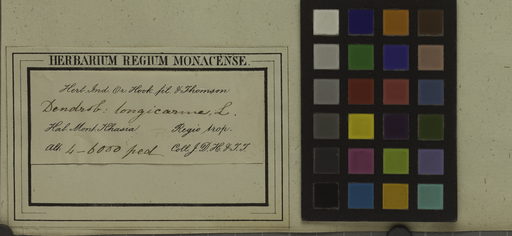 HERBARIUM REGIUM MONACENSE.
Herb. Ind. Or. Hook. fil. & Thomson
Dendrob: longicornu, L.
Hab. Mont. Khasia Regio trop.
Alt. 4-6000 ped. Coll. J. D. H. & T. T.